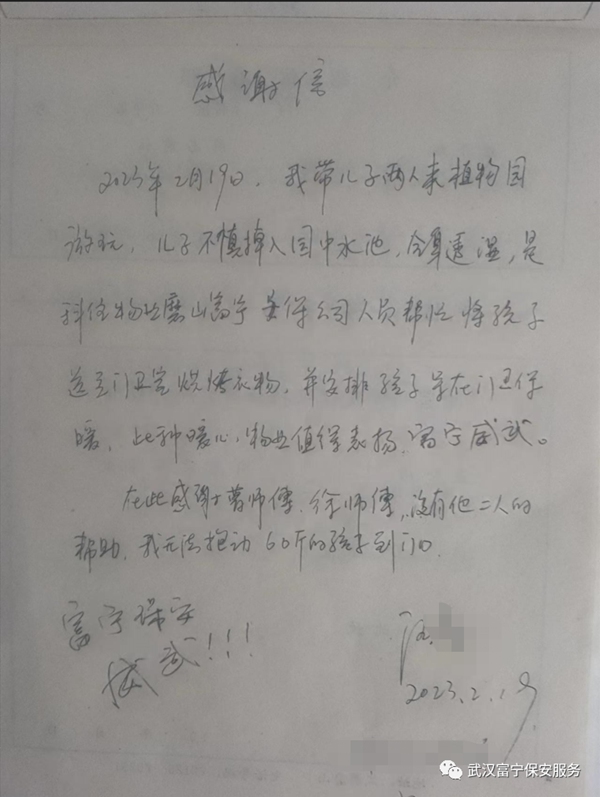 感谢信
2023年2月19日，我带儿子两人来植物园
游玩，儿子不慎掉入园中水池，全身透湿，是
科住物业磨山富宁安保公司人员帮忙将孩子
送至门卫室烘烤衣物，并安排孩子呆在门卫保
暖，此种暖心，物业值得表扬，富宁威武。
在此感谢曹师傅、徐师傅，没有他二人的
帮助，我无法抱动60斤的孩子到门口。
富宁保安
威武!!!
2023.2.19
武汉富宁保安服务